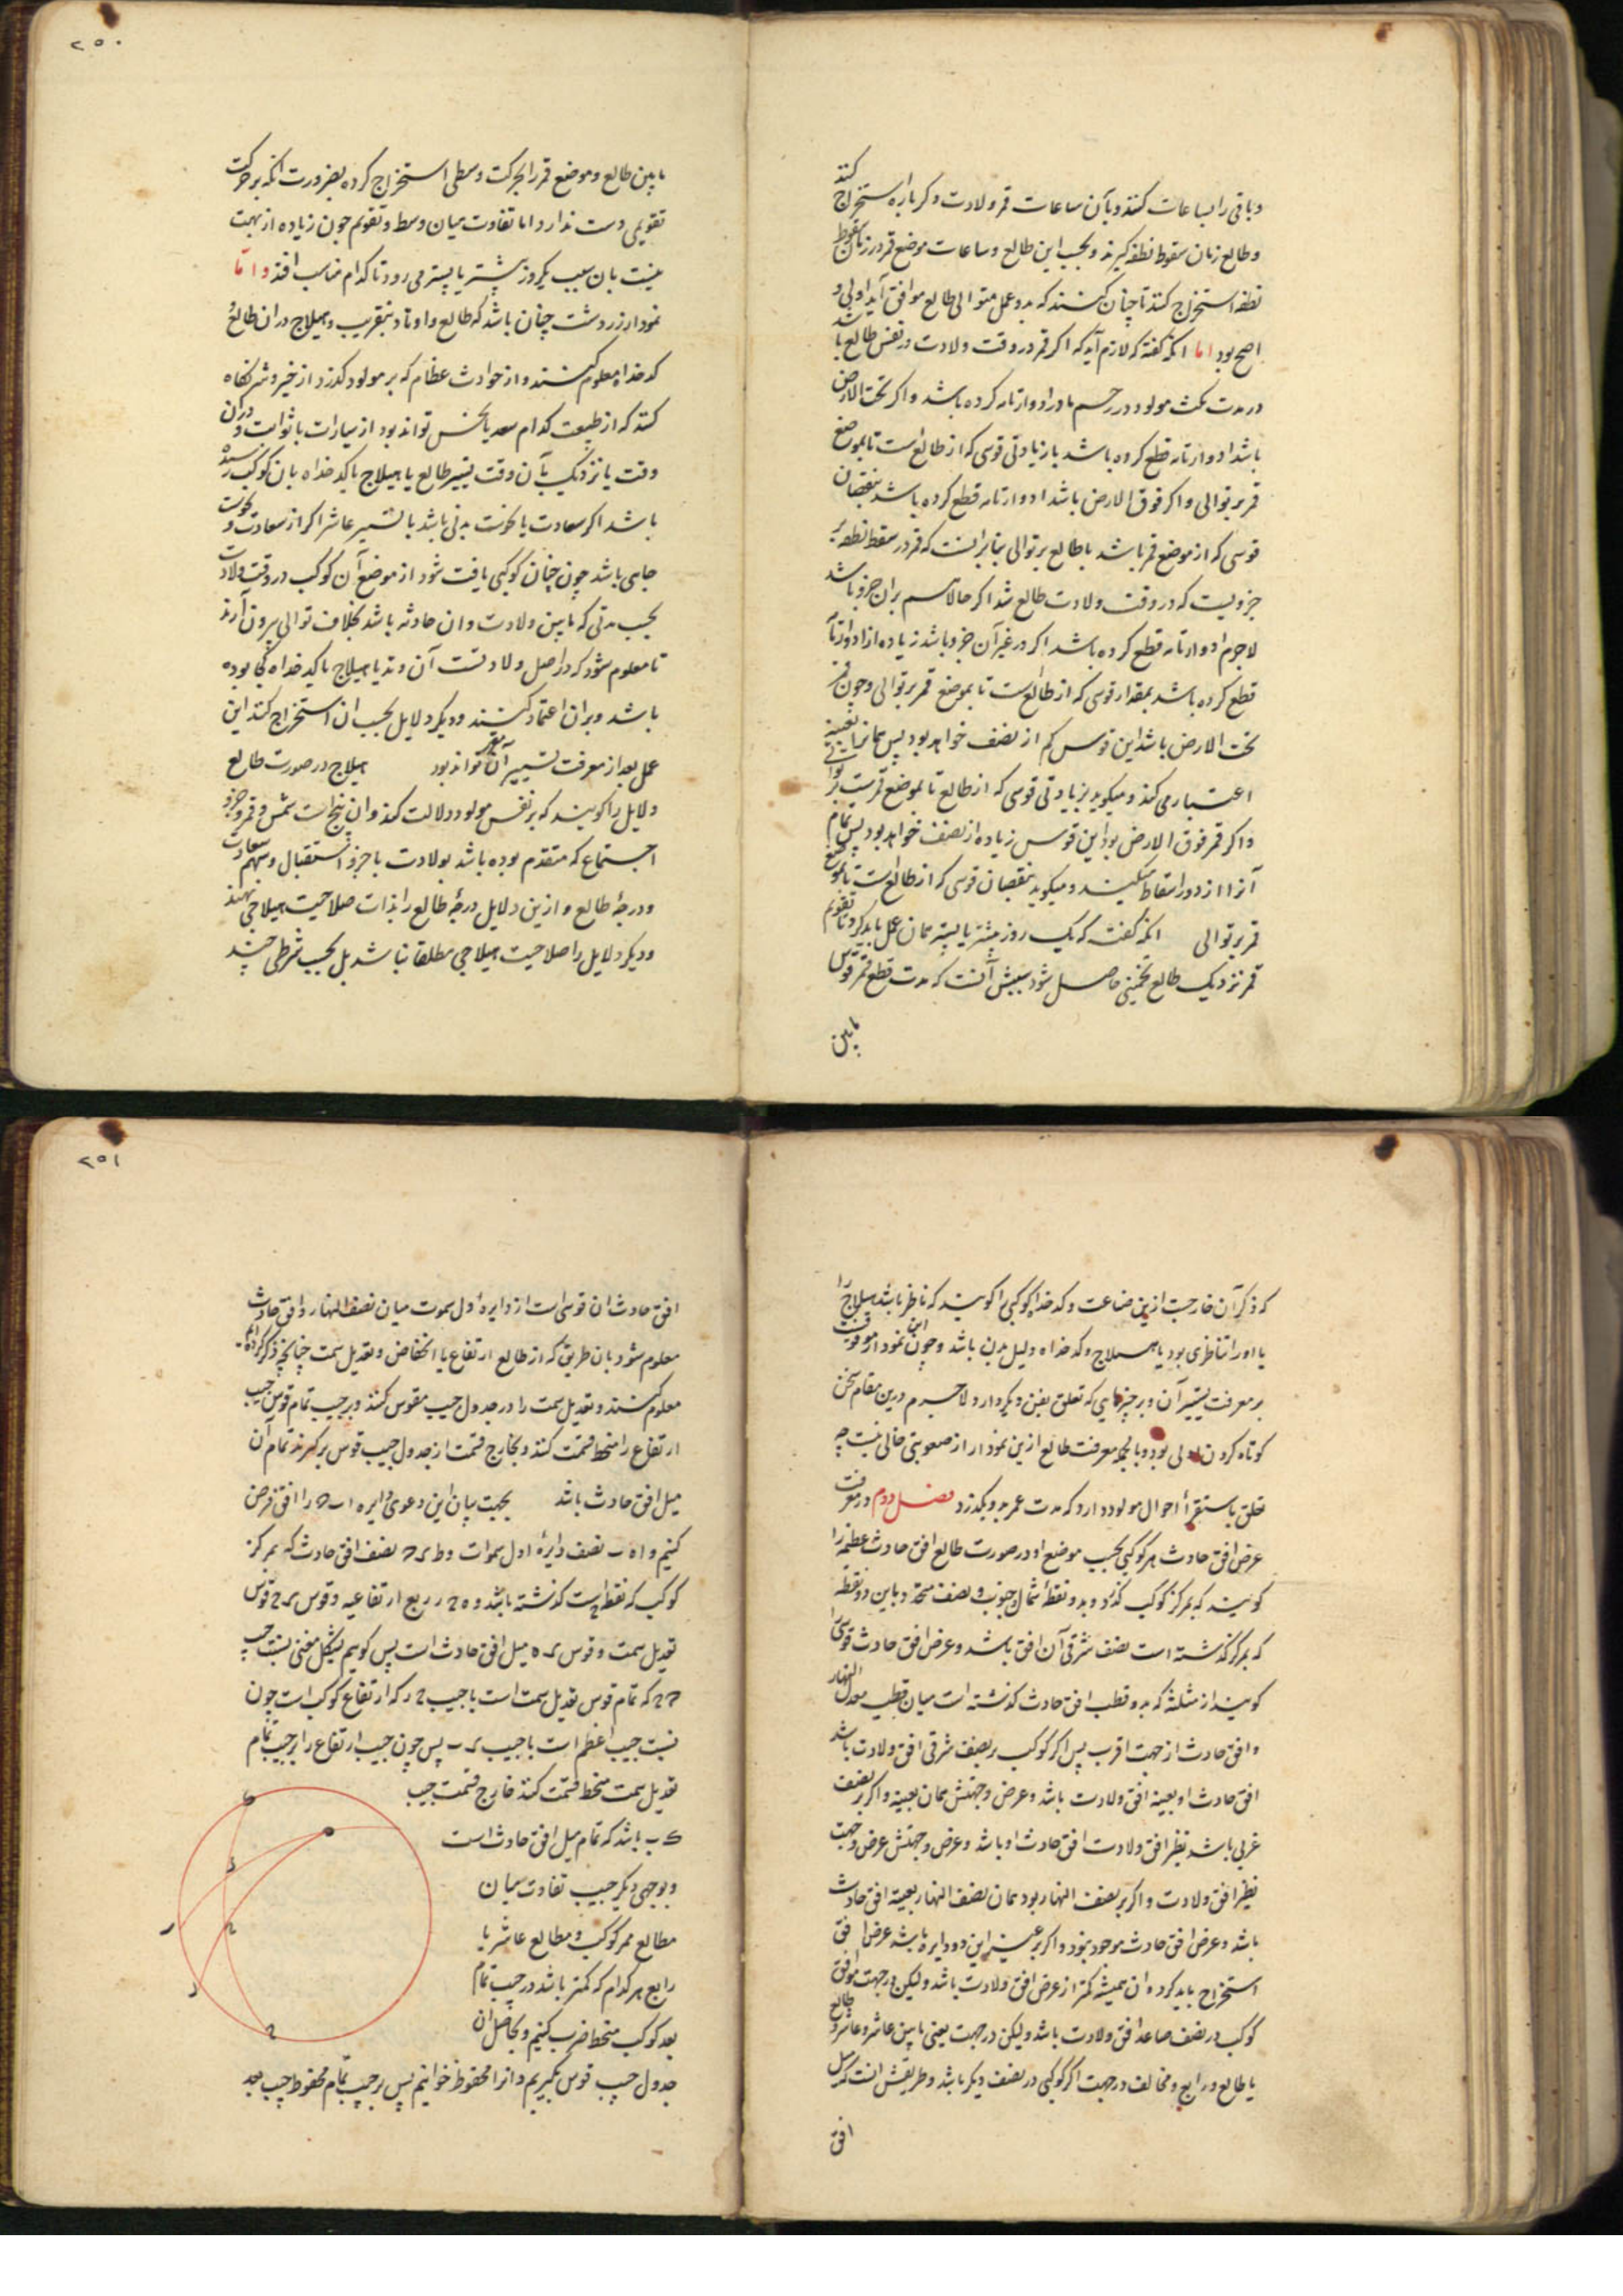 کنند
و باقی را بساعات کنند و بآن ساعات قمر ولادت دکرباره استخراج
و طالع زمان سقوط نطفه کیرند و بحسب این طالع و ساعات موضع قمر در زمان سقوط
نطفه استخراج کنند تا چنان کنند که بدو عمل متوالی طالع موافق آید اولی و
اصح بود اما انکه کفته که لازم آید که اکر قمر در وقت ولادت در نفس طالع باشد
در مدت مکث مولود در رحم مادر ادوار تامه کرده باشد و اکر تحت الارض
باشد ادوار تامه قطع کرده باشد با زیادتی قوسی که از طالع است تا بموضع
قمر بر توالی و اکر فوق الارض باشد ادوار تامه قطع کرده باشد بنقصان
قوسی که از موضع قمر باشد با طالع بر توالی بنابر انست که قمر در سقط نطفه بر
جزویست که در وقت ولادت طالع شد اکر حالا هم بران جزو باشد
لاجرم ادوار تامه قطع کرده باشد اکر در غیر آن جزو باشد زیاده از ادوار تامه
قطع کرده باشد بمقدار قوسی که از طالع است تا بموضع قمر بر توالی و چون قمر
تحت الارض باشد این قوس کم از نصف خواهد بود پس همانرا بعینه
اعتبار می کند و میکوید بزیادتی قوسی که از طالع تا بموضع قمر است بر توالی
و اکر قمر فوق الارض بود این قوس زیاده از نصف خواهد بود پس تمام
آنرا از دور اسقاط میکنند و میکوید بنقصان قوسی که از طالع است تا بموضع
قمر بر توالی انکه کفت که یک روز پیشتر یا پستر همان عمل باید کرد تا تقویم
قمر نزدیک طالع تخمینی حاصل شود سببش آنست که مدت قطع قمر قوس
مابین
۲۵۰
مابین طالع و موضع قمر را بحرکت وسطی استخراج کرده بضرورت انکه بر حرکت
تقویمی دست ندارد اما تفاوت میان وسط و تقویم چون زیاده از نهمت
نیست بان سبب یکروز پیشتر یا پستر می رود تا کدام مناسب افتد و اما
نمودار زردشت چنان باشد که طالع و اوتاد بتقریب و هیلاج دران طالع
کدخدا معلوم کنند و از حوادث عظام که بر مولود کذرد از خیر و شر نکاه
کنند که از طبیعت کدام سعد یا نحس تواند بود از سیارات یا ثوابت و دران
وقت یا نزدیک بآن وقت تسییر طالع یا هیلاج یا کدخداه بان کوکب رسیده
باشد اکر سعادت یا نحوست بدنی باشد یا تسییر عاشر اکر از سعادت و نحوست
جاهی باشد چون چنان کوکبی یافت شود از موضع آن کوکب در وقت ولادت
بحسب مدتی که مابین ولادت و ان حادثه باشد بخلاف توالی بیرون آرند
تا معلوم شود که در اصل ولادت آن وتد یا هیلاج یا کدخداه کجا بوده
باشد و بران اعتماد کنند و دیکر دلایل بحسب ان استخراج کنند این
عمل بعد از معرفت تسییر آن تواند بود هیلاج در صورت طالع
دلایل را کویند که بر نفس مولود دلالت کند و ان پنج است شمس و قمر و جزو
اجتماع که متقدم بوده باشد بولادت یا جزو استقبال و سهم سعادت
و درجهٔ طالع و ازین دلایل درجهٔ طالع را بذات صلاحیت هیلاجی نهند
و دیکر دلایل را صلاحیت هیلاجی مطلقا نباشد بل بحسب شرطی چند
که ذکر آن خارجست ازین صناعت و کدخدا کوکبی را کویند که ناظر باشد بهیلاج را
یا او را تناظری بود یا هیلاج و کدخداه دلیل بدن باشد و چون این نمودار موقوفست
بر معرفت تسییر آن و بر چیزهایی که تعلق بفن دیکر دارد لاجرم درین مقام سخن
کوتاه کردن اولی بود و بالجمله معرفت طالع ازین نمودار از صعوبتی خالی نیست چه
تعلق باستقراء احوال مولود دارد که مدت عمر برو بکذرد فصل دوم در معرفت
عرض افق حادث هر کوکبی بحسب موضع او در صورت طالع افق حادث عظیمه را
کویند که بمرکز کوکب کذرد و بدو نقطهٔ شمال و جنوب و نصف متحد و باین دو نقطه
که بمرکز کذشته است نصف شرقی آن افق باشد و عرض افق حادث قوسی را
کویند از مثلثه که بدو قطب افق حادث کذشته است میان قطب معدل النهار
و افق حادث از جهت اقرب پس اکر کوکب بر نصف شرقی افق ولادت باشد
افق حادث او بعینه افق ولادت باشد و عرض و جهتش همان بعینه و اکر بر نصف
غربی باشد نظیر افق ولادت افق حادث او باشد و عرض و جهتش عرض و جهت
نظیر افق ولادت و اکر بر نصف النهار بود همان نصف النهار بعینه افق حادث
باشد و عرض افق حادث موجود نبود و اکر بر غیر این دو دایره باشد عرض افق
استخراج باید کرد و ان همیشه کمتر از عرض افق ولادت باشد و لیکن در جهت موافق
کوکب در نصف صاعد افق ولادت باشد و لیکن در جهت یعنی مابین عاشر و طالع
یا طالع و رابع و مخالف در جهت اکر کوکبی در نصف دیکر باشد و طریقش انست که میل
افق
۲۵۱
افق حادث ان قوسی است از دایرهٔ اول سموت میان نصف النهار و افق حادث
معلوم شود بان طریق که از طالع ارتفاع یا انخفاض و تعدیل سمت چنانچه ذکر کرده ایم
معلوم کنند و تعدیل سمت را در جدول جیب مقوس کنند و بر جیب تمام قوس جیب
ارتفاع را منحط قسمت کنند و بخارج قسمت از جدول جیب قوس برکیرند تمام آن
میل افق حادث باشد بجهت بیان این دعوی دایره ا ب ح را افق فرض
کنیم و ا ه ب نصف دایرهٔ اول سموات و ط ی ح نصف افق حادث که بمرکز
کوکب که نقطه ح است کذشته باشد و ه ح ر ربع ارتفاعیه و قوس ی ح قوس
تعدیل سمت و قوس ی ه میل افق حادث است پس کوییم بشکل مغنی نسبت جیب
ح ط که تمام قوس تعدیل سمت است با جیب ح ر که ارتفاع کوکب است چون
نسبت جیب اعظم است با جیب ی ب پس چون جیب ارتفاع را بر جیب تمام
تعدیل سمت منحط قسمت کنند خارج قسمت جیب
ی ب باشد که تمام میل افق حادث است
و بوجهی دیکر جیب تفاوت میان
مطالع ممر کوکب و مطالع عاشر یا
رابع هر کدام که کمتر باشد در جیب تمام
بعد کوکب منحط ضرب کنیم و بحاصل ان
جدول جیب قوس بکیریم و انرا محفوظ خوانیم پس بر جیب تمام محفوظ جیب بعد